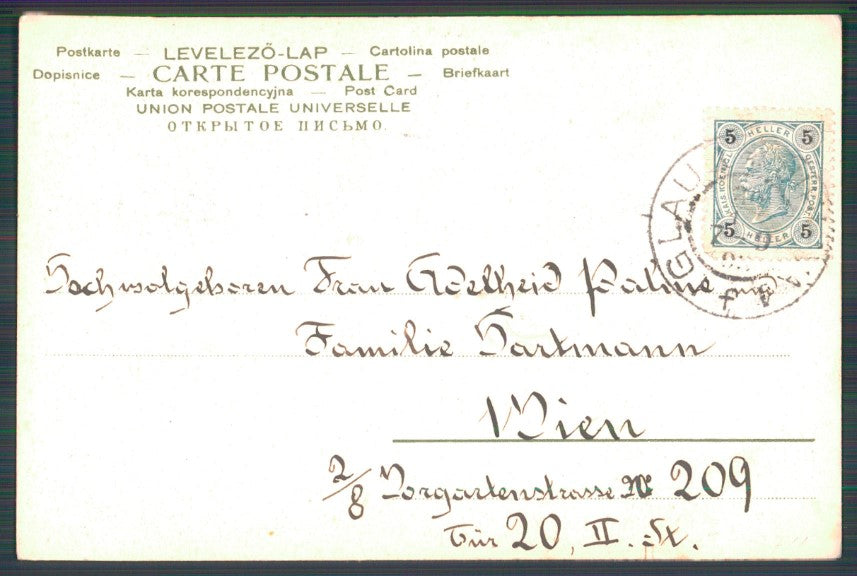 Postkarte — LEVELEZŐ-LAP — Cartolina postale
Dopisnice — CARTE POSTALE — Briefkaart
Karta korespondencyjna — Post Card
UNION POSTALE UNIVERSELLE
ОТКРЫТОЕ ПИСЬМО.
5 HELLER 5
5 HELLER 5
IGLAU
Hochwolgeboren Frau Adelheid und
Familie Hartmann
Wien
2/8 Vorgartenstrasse № 209
Tür 20, II. St.